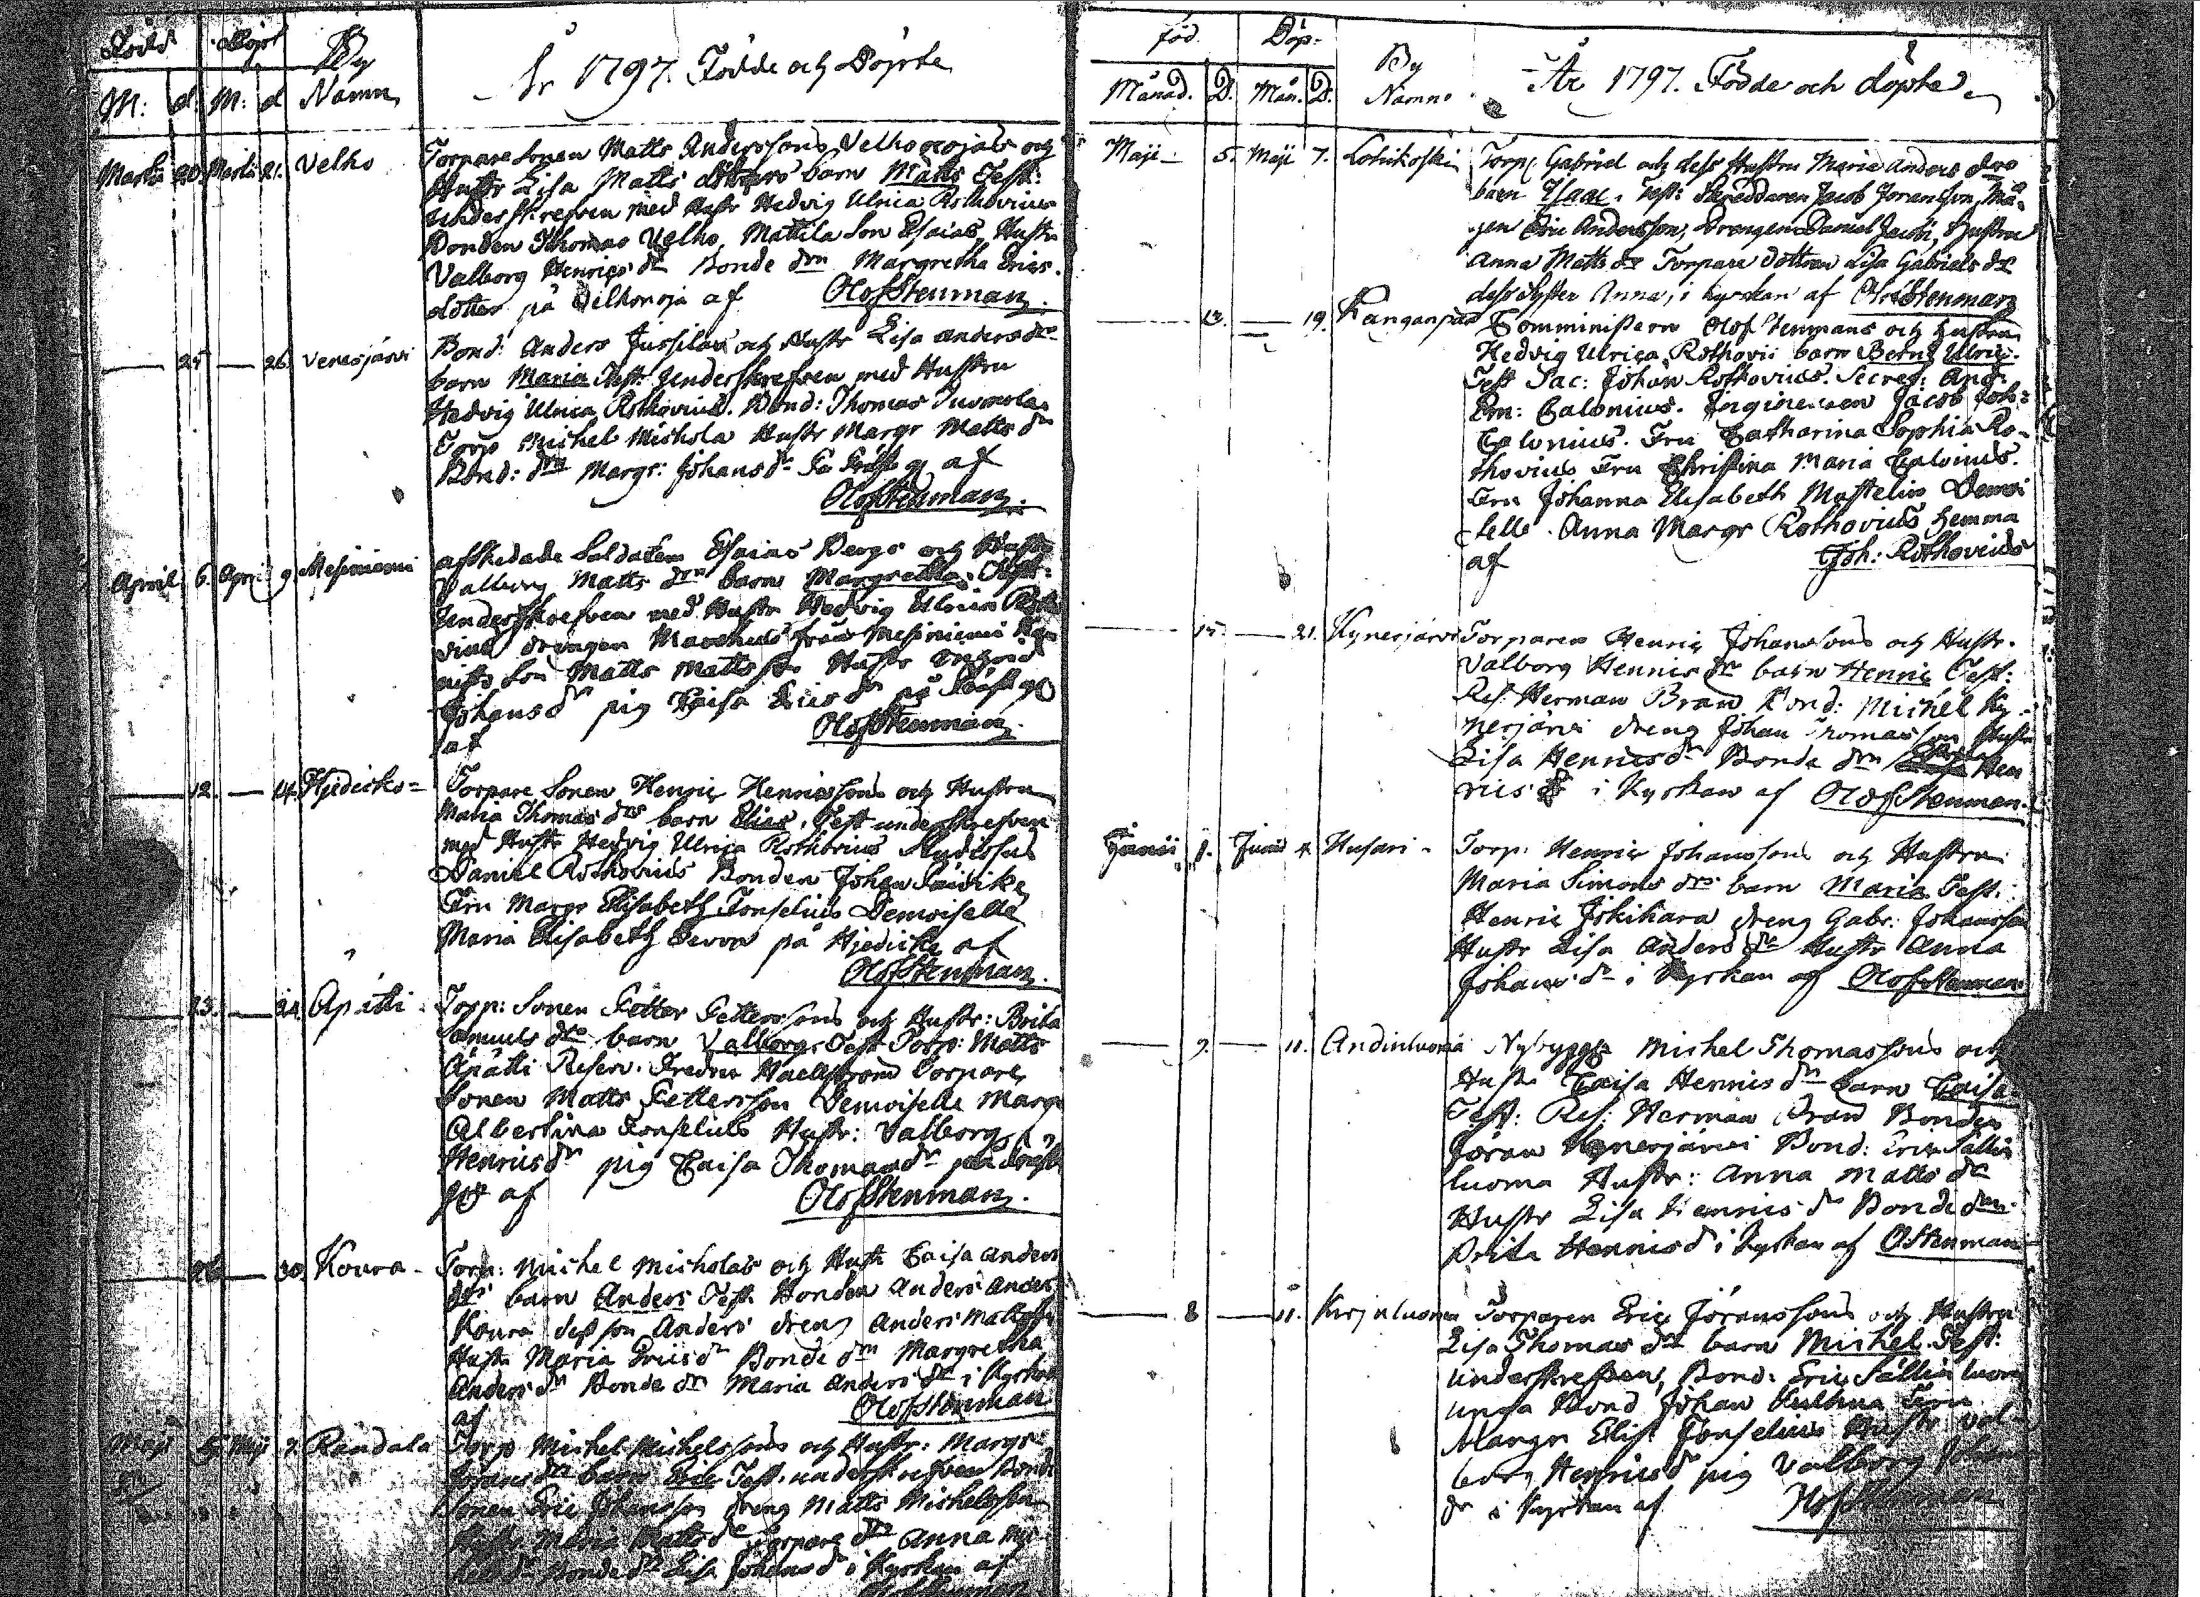 Född Döpt By
M: d. M: d Namn
År 1797. Födde och Döpte
Martii 20. Martii 21. Velho
Torpare Sonen Matts Anderssons Velhonojals och
Hustr Lisa Matts dotters barn Matts Test:
underskrefven med Hustr Hedvig Ulrica Rothovius
Bonden Thomas Velho, Mattila Son Esaias, Hustr
Valborg Henrics dr Bonde drn Margretha Erics
dotter på Vilkonoja af Olof Stenman.
25 26. Venesjärvi
Bond: Anders Jussilas och Hustr Lisa Anders drs
barn Maria Test: Underskrefven med Hustru
Hedvig Ulrica Rothovius. Bond: Thomas Tuomola
Torp Michel Mickola Hustr Margr Matts dr
Bond: drn Margr: Johans dr af
Olof Stenman.
April 6. April 9 Mesiniemi
afskedade Soldaten Esaias Bergs och Hustr
Valborg Matts drs barn Margretha. Test:
Underskrefven med Hustr Hedvig Ulrica
drängen från Mesiniemi
son Matts Mattsson Hustr
Johans dr pig Caisa Erics dr på
af Olof Stenman.
12. 14. Hjedicko=
Torpare Sonen Henric Henricssons och Hustru
Maria Thomas drs barn Elias. Test underskrefven
med Hustr Hedvig Ulrica Rothovius Studiosus
Daniel Rothovius Bonden Johan
Fru Margr Elisabeth Forselius Demoiselle
Maria Elisabeth på Hjedicko af
Olof Stenman.
23. 24. Apätti
Torp: Sonen Petter Petterssons och Hustr: Brita
Samuels drs barn Valborg. Test Torp: Matts
Apätti Reserv. Fredric Haellström Torpare
Sonen Matts Pettersson Demoiselle Margr
Albertina Forselius Hustr: Valborg
Henrics dr pig Caisa Thomas dr på
af Olof Stenman.
26 30. Koura
Torp: Michel Mickolas och Hustr Caisa Anders
drs barn Anders Test. Bonden Anders Anders
Koura dess son Anders dreng Anders Mattsson
Hustr Maria Erics dr Bonde drn Margretha
Anders dr Bonde dr Maria Anders dr i Kyrkan
af Olof Stenman
Maji 5 Maji 7. Randala
Torp Michel Michelssons och Hustr: Margr
Johans drs barn Eric Test. underskrefven Bonde
Sonen Eric Johansson dreng Matts Michelsson
Hustr Maria Matts dr Torpare dr Anna
Bonde dr Lisa Johans dr i Kyrkan af
Olof Stenman
Föd. Döp. By
Månad. D. Mån. D. Namn.
År 1797. Födde och döpte
Maji 5. Maji 7. Lohikoski
Torp: Gabriel och dess Hustru Maria Anders drs
barn Isaac. Test: Skreddaren Jacob Jöransson, Må-
gen Eric Andersson, Drängen Daniel Jacobs, Hustru
Anna Matts dr Torpare dottren Lisa Gabriels dr
dess Syster Anna, i Kyrkan af Olof Stenman
12. 19. Kanganpää
Comministern Olof Stenmans och Hustrun
Hedvig Ulrica Rothovii barn Bernd Ulric.
Test Sac: Johan Rothovius. Secret: And:
Em: Calonius. Jacob Joh:
Calonius. Fru Catharina Sophia Ro-
thovius Fru Christina Maria Calonius.
Fru Johanna Elisabeth Mastelin Demoi
selle Anna Margr Rothovius hemma
af Joh: Rothovius
15. 21. Kynerjärvi
Torparen Henric Johanssons och Hustr.
Valborg Henrics dr barn Henric Test:
Res: Herman Brand Bond: Michel Ky-
nerjärvi dreng Johan Thomasson Hustr
Lisa Henrics dr Bonde drn Hen
rics dr i Kyrkan af Olof Stenman.
Junii 1. Junii 4 Husari
Torp: Henric Johanssons och Hustru
Maria Simons drs barn Maria Test.
Henric Jokikara dreng Gabr: Johansson
Hustr Lisa Anders dr Hustr Anna
Johans dr i Kyrkan af Olof Stenman.
9. 11. Andinluoma
Nybygg: Michel Thomassons och
Hustr Caisa Henrics drs barn Caisa
Test: Res: Herman Brand Bonden
Jöran Kynerjärvi Bond: Eric Sällin
luoma Hustr: Anna Matts dr
Hustr Lisa Henrics dr Bonde drn
Brita Henrics dr i Kyrkan af O Stenman
8 11. Kirjnluoma
Torparen Eric Jöranssons och Hustru
Lisa Thomas drs barn Michel. Test:
underskrefven, Bond: Eric Sällin luoma
unga Bond Johan Fru
Margr Elis. Forselius Hustr Val-
borg Henrics dr pig Valborg Johans
dr i Kyrkan af Olof Stenman